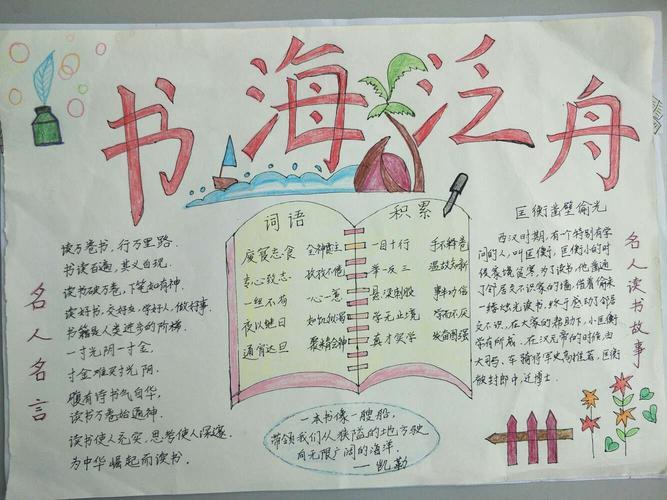 书海泛舟
名人名言
读万卷书，行万里路.
书读百遍，其义自现.
读书破万卷，下笔如有神.
读好书，交好友，学好人，做好事.
书籍是人类进步的阶梯.
一寸光阴一寸金，
寸金难买寸光阴.
腹有诗书气自华，
读书万卷始通神.
读书使人充实，思考使人深邃.
为中华崛起而读书.
词语
废寝忘食 全神贯注
专心致志 孜孜不倦
一丝不苟 一心一意
夜以继日 如饥似渴
通宵达旦 聚精会神
积累
一目十行 手不释卷
举一反三 温故知新
悬梁刺股 事半功倍
学无止境 学而不厌
真才实学 发奋图强
一本书像一艘船，
带领我们从狭隘的地方驶
向无限广阔的海洋.
——凯勒
匡衡凿壁偷光
西汉时期，有个特别有学
问的人，叫匡衡，匡衡小的时
候家境贫寒，为了读书，他凿通
了邻居文不识家的墙，借着偷来
一缕烛光读书，终于感动了邻居
文不识，在大家的帮助下，小匡衡
学有所成. 在汉元帝的时候，由
大司马、车骑将军史高推荐，匡衡
做封郎中，迁博士.
名人读书故事